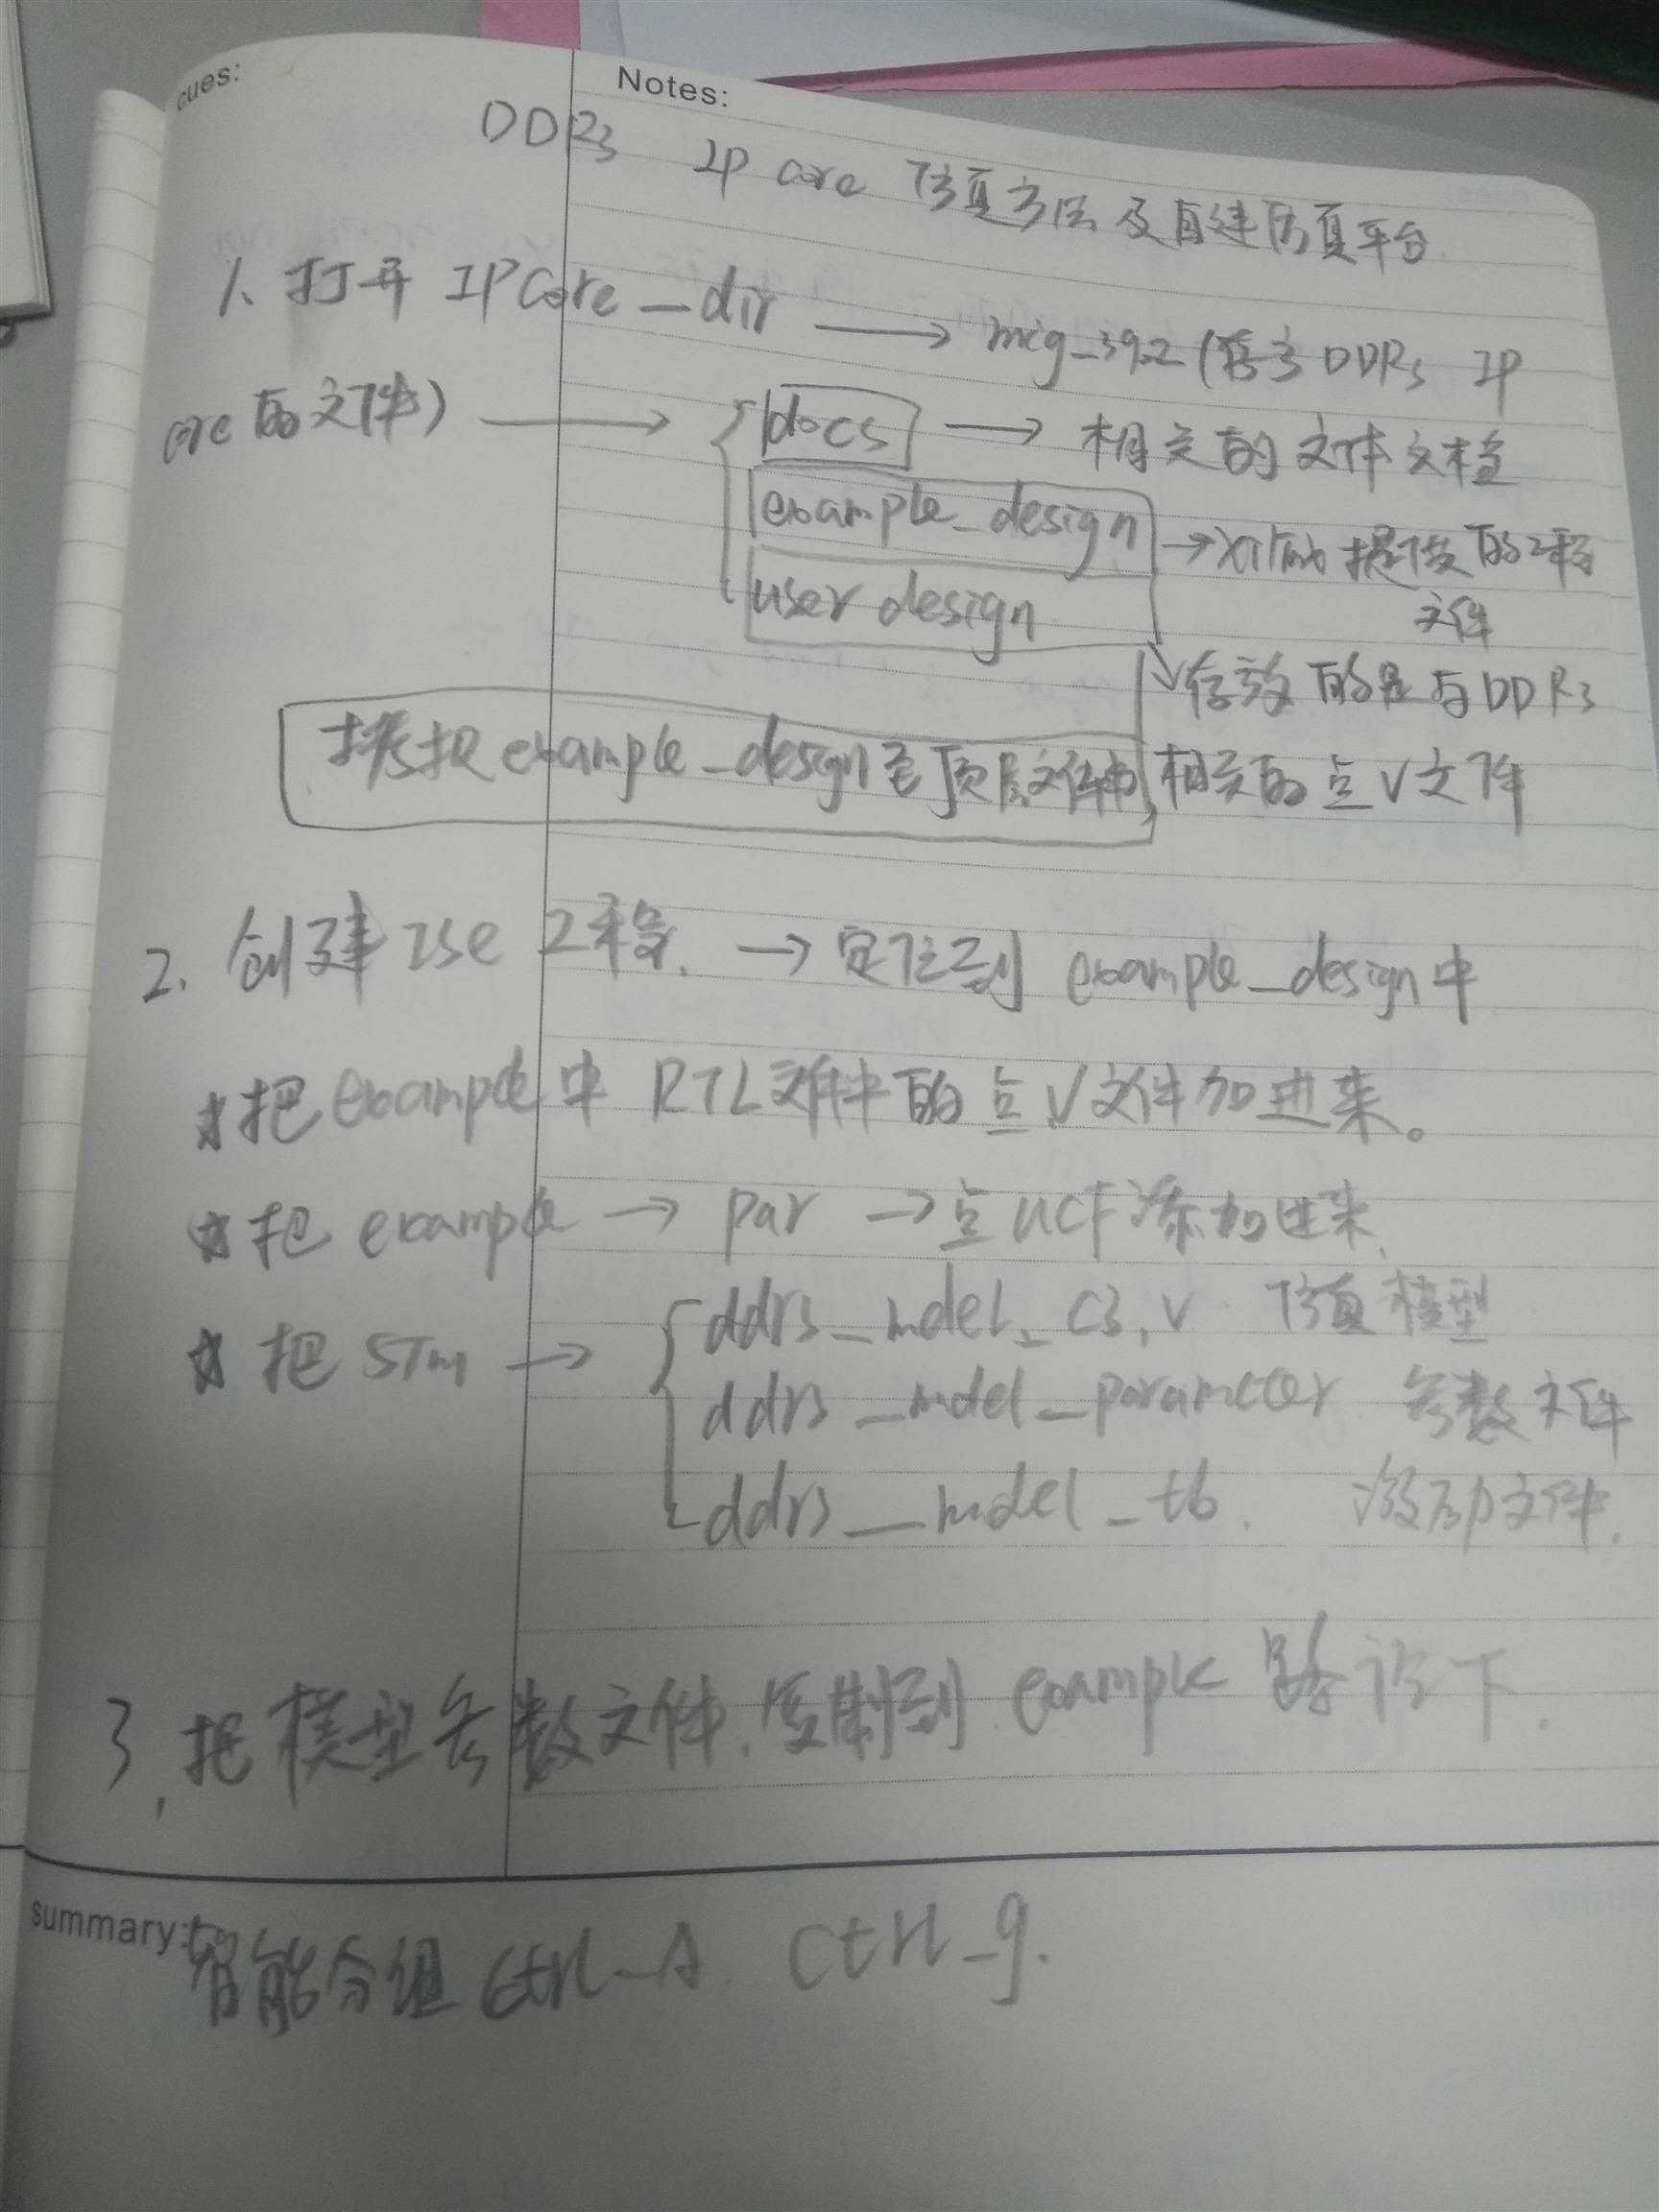 cues:
Notes:
DDR3 IP core 仿真方法及自建仿真平台
1、打开 IPCore_dir → mig_39_2 (存放 DDR3 IP
core 的文件) → docs → 相关的文件文档
example_design → xilinx 提供的工程
user design 文件
存放的是与DDR3
拷贝 example_design 至顶层文件中, 相关的点V文件
2、创建 ISE 工程. → 定位到 example_design中
☆把 example 中 RTL文件中的点V文件加进来。
☆把 example → par → 点UCF添加进来.
☆把 sim → ddr3_model_c3.v 仿真模型
ddr3_model_parameter 参数文件
ddr3_model_tb. 激励文件.
3, 把模型参数文件.复制到 example 路径下.
summary:
智能分组 ctrl_A. ctrl_g.